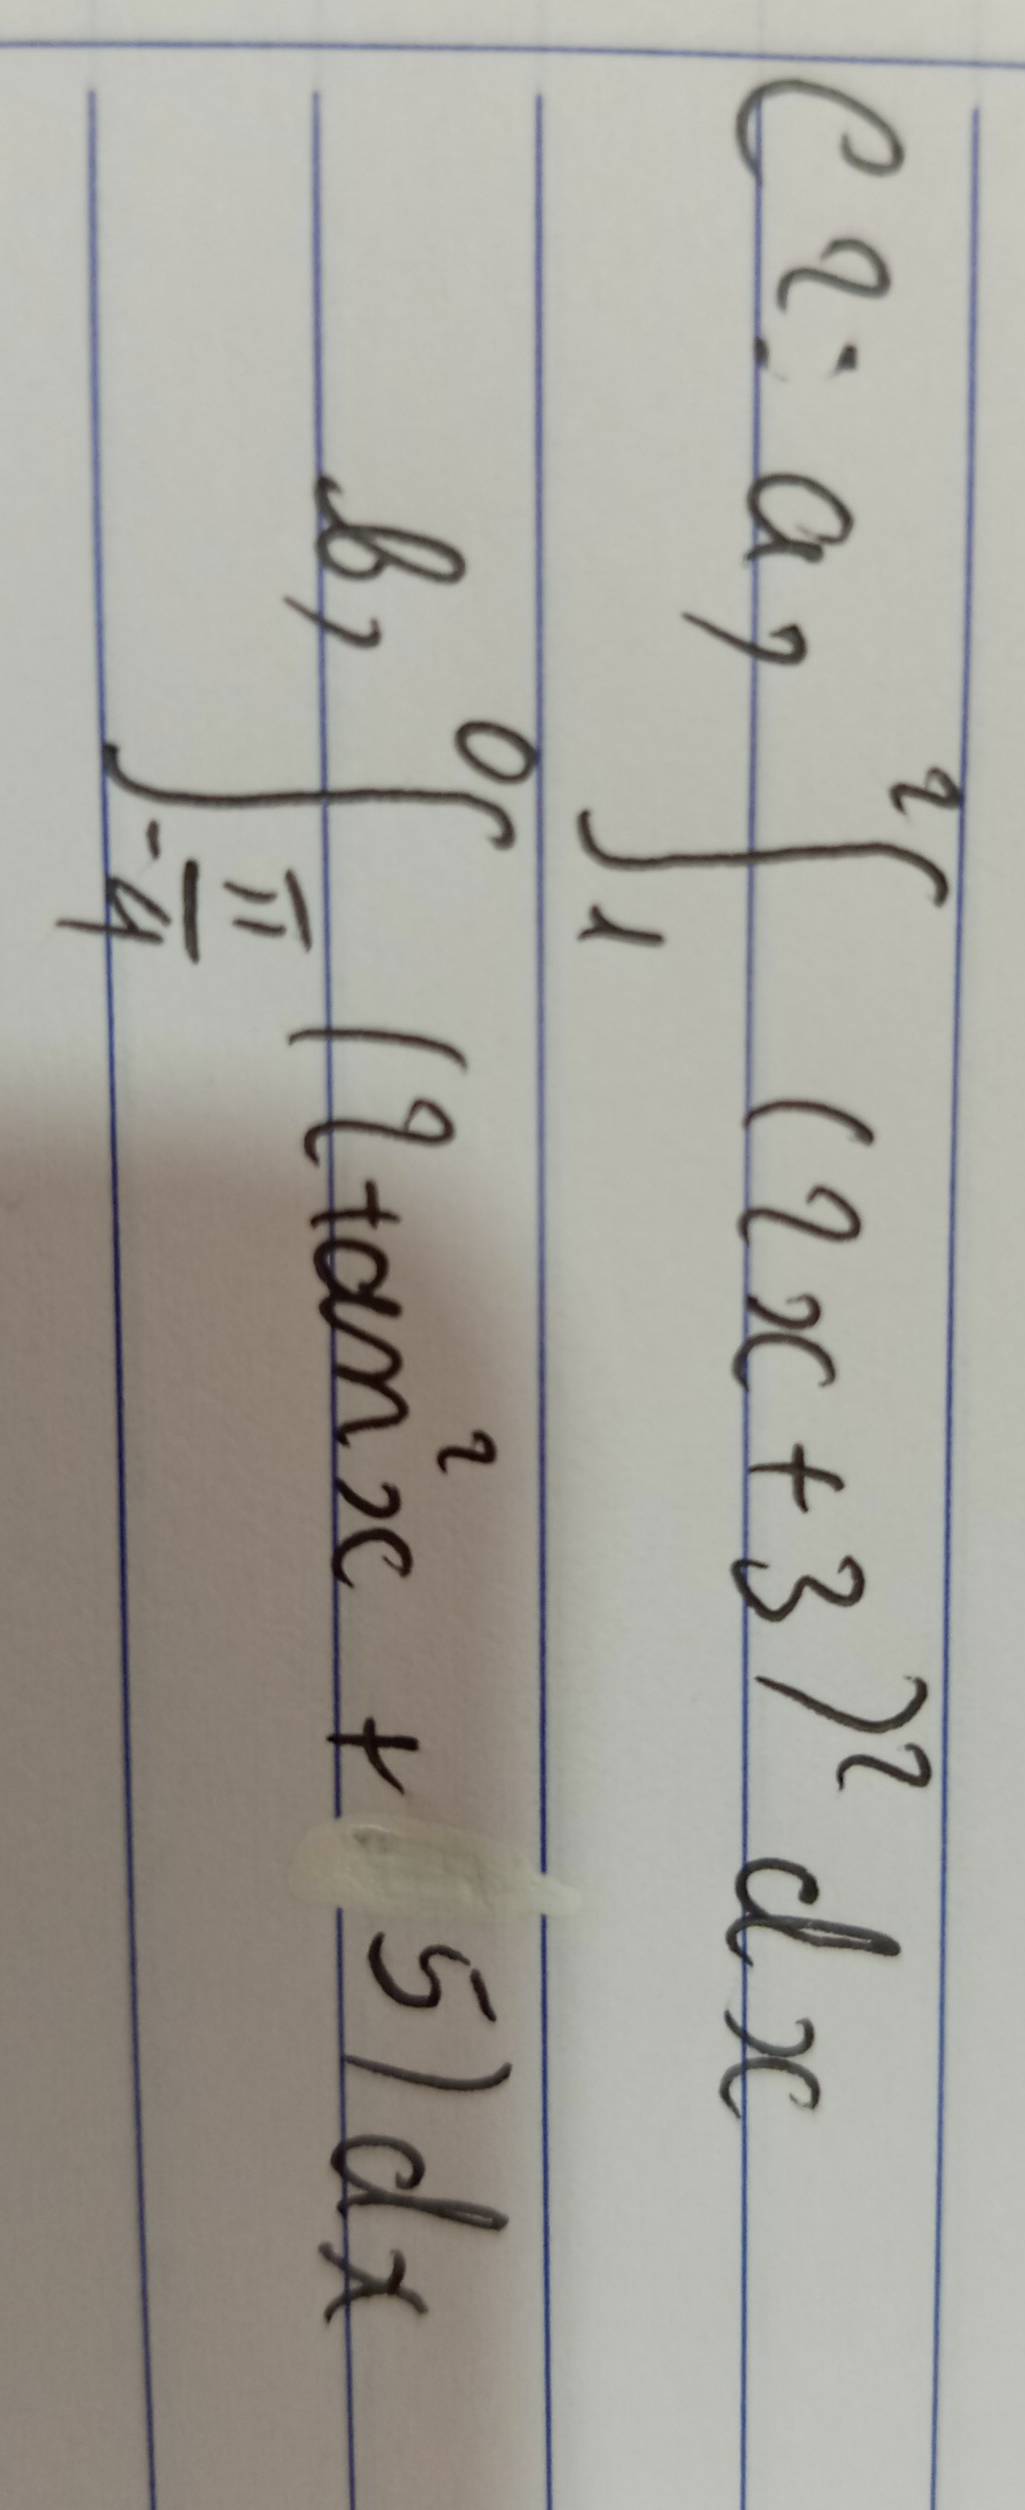 C2: a, ∫₁² (2x + 3)² dx
b, ∫_{-π/4}^{0} (2tan²x + 5) dx